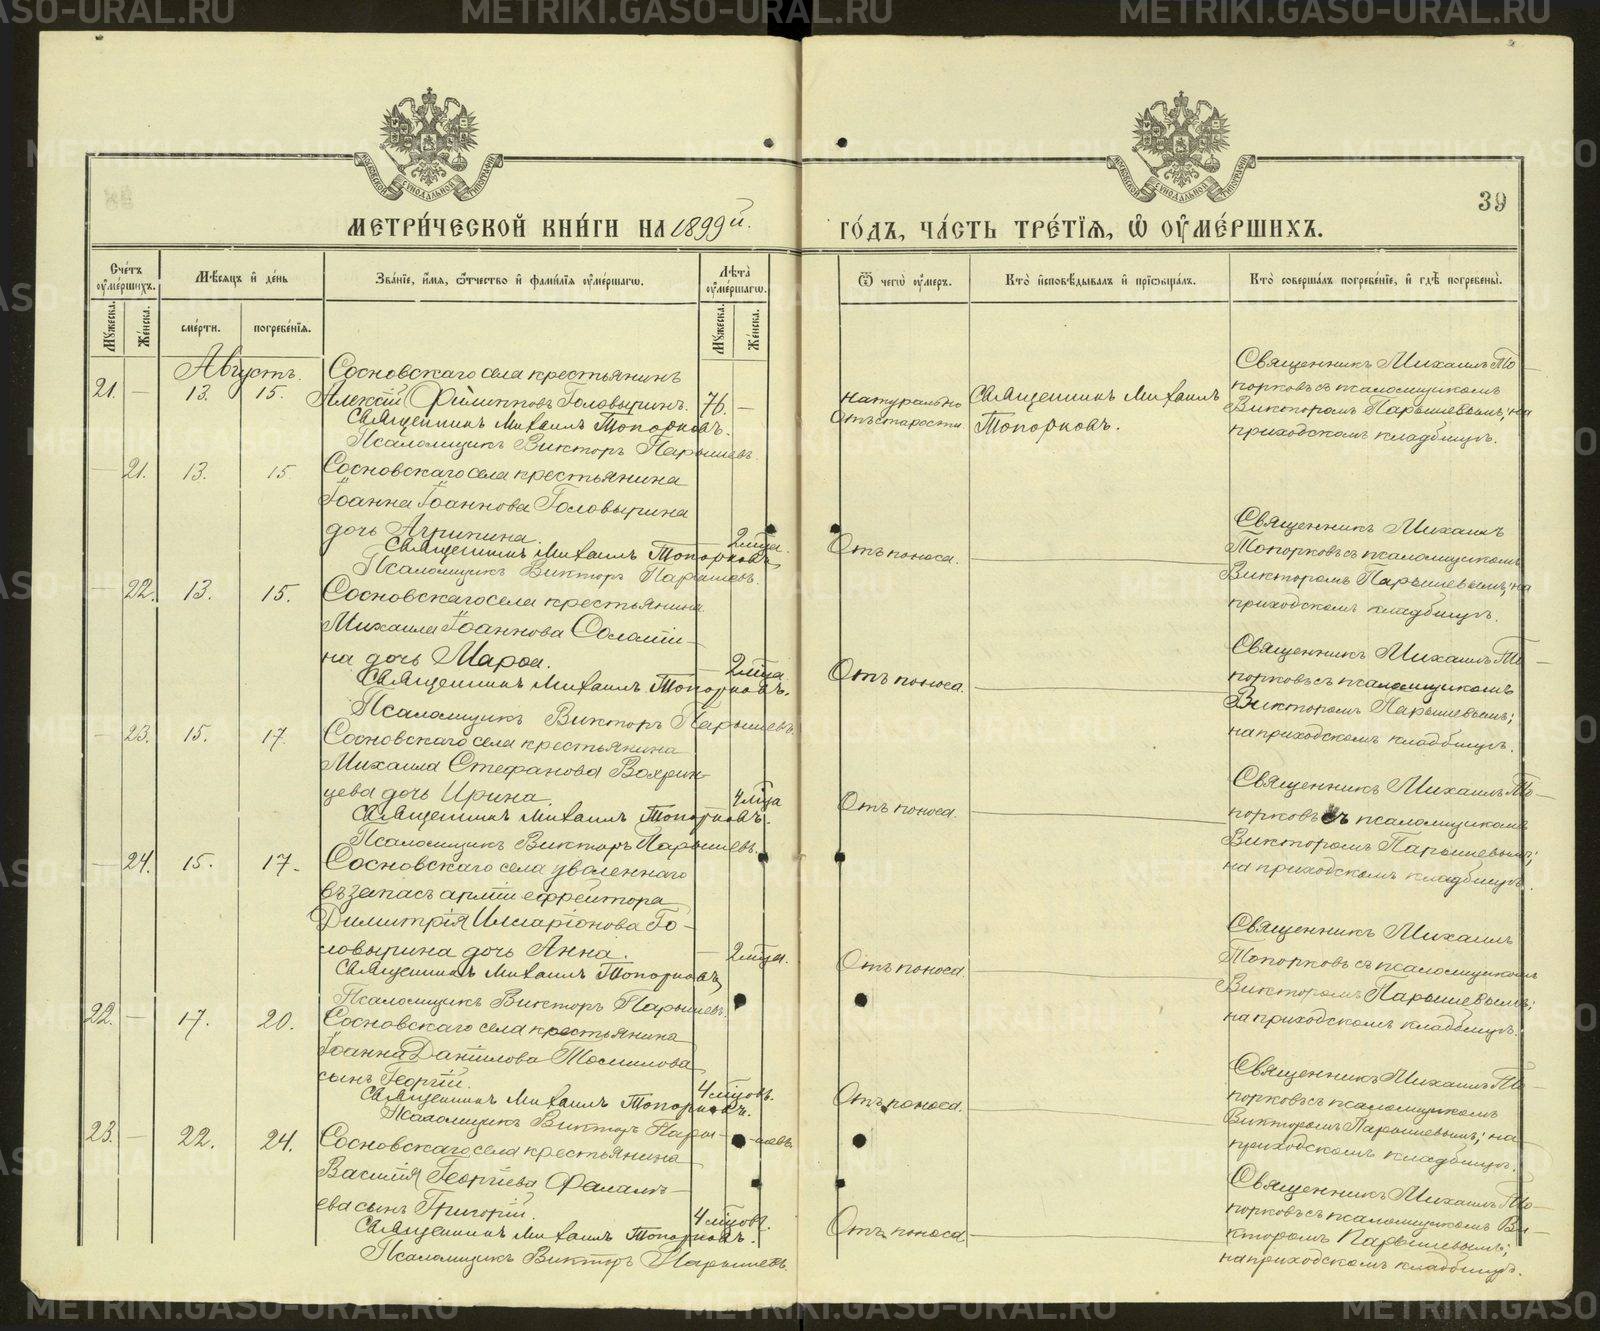 39
МЕТРИ́ЧЕСКОЙ КНИ́ГИ НА 1899й.
ГО́ДЪ, ЧА́СТЬ ТРЕ́ТЇѦ, Ѡ҆ ОУ҆МЕ́РШИХЪ.
Сче́тъ оу҆ме́ршихъ.
Мꙋжеска.
Же́нска.
Мѣ́сѧцъ и҆ де́нь
сме́рти.
погребе́нїѧ.
Зва́нїе, и҆́мѧ, ѻ҆́тчество и҆ фами́лїѧ оу҆ме́ршагѡ.
Лѣ̀та оу҆ме́ршагѡ.
Мꙋжеска.
Же́нска.
Ѿ чегѡ̀ оу҆́меръ.
Кто̀ и҆сповѣ́дывалъ и҆ прїѡбща́лъ.
Кто̀ соверша́лъ погребе́нїе, и҆ гдѣ̀ погребены̀.
Августъ.
21. — 13. 15.
Сосновскаго села крестьянинъ
Алексій Филипповъ Головыринъ. 76. —
Священникъ Михаилъ Топорковъ.
Псаломщикъ Викторъ Парышевъ.
натурально
отъ старости
Священникъ Михаилъ
Топорковъ.
Священникъ Михаилъ То-
порковъ съ псаломщикомъ
Викторомъ Парышевымъ; на
приходскомъ кладбищѣ.
— 21. 13. 15
Сосновскаго села крестьянина
Іоанна Іоаннова Головырина
дочь Агрипина. 2 мѣца.
Священникъ Михаилъ Топорковъ
Псаломщикъ Викторъ Парышевъ.
Отъ поноса.
Священникъ Михаилъ
Топорковъ съ псаломщикомъ
Викторомъ Парышевымъ; на
приходскомъ кладбищѣ.
— 22. 13. 15.
Сосновскаго села крестьянина
Михаила Іоаннова
на дочь Марѳа. — 2 мѣца
Священникъ Михаилъ Топорковъ.
Псаломщикъ Викторъ Парышевъ.
Отъ поноса.
Священникъ Михаилъ То-
порковъ съ псаломщикомъ
Викторомъ Парышевымъ;
на приходскомъ кладбищѣ.
— 23. 15. 17.
Сосновскаго села крестьянина
Михаила Стефанова Вохрин-
цева дочь Ирина. 4 мѣца
Священникъ Михаилъ Топорковъ.
Псаломщикъ Викторъ Парышевъ.
Отъ поноса.
Священникъ Михаилъ То-
порковъ съ псаломщикомъ
Викторомъ Парышевымъ;
на приходскомъ кладбищѣ.
— 24. 15. 17.
Сосновскаго села уволеннаго
въ запасъ арміи ефрейтора
Димитрія Иларіонова Го-
ловырина дочь Анна. — 2 мѣца.
Священникъ Михаилъ Топорковъ
Псаломщикъ Викторъ Парышевъ.
Отъ поноса
Священникъ Михаилъ
Топорковъ съ псаломщикомъ
Викторомъ Парышевымъ;
на приходскомъ кладбищѣ.
22. — 17. 20.
Сосновскаго села крестьянина
Іоанна Даніилова
сынъ Георгій. 4 мѣцовъ.
Священникъ Михаилъ Топорковъ.
Псаломщикъ Викторъ Пары-шевъ.
Отъ поноса.
Священникъ Михаилъ То-
порковъ съ псаломщикомъ
Викторомъ Парышевымъ; на
приходскомъ кладбищѣ.
23. — 22. 24.
Сосновскаго села крестьянина
Василія Георгіева
ева сынъ Григорій. 4 мѣцовъ.
Священникъ Михаилъ Топорковъ.
Псаломщикъ Викторъ Парышевъ.
Отъ поноса
Священникъ Михаилъ То-
порковъ съ псаломщикомъ Ви-
кторомъ Парышевымъ;
на приходскомъ кладбищѣ.
METRIKI.GASO-URAL.RU